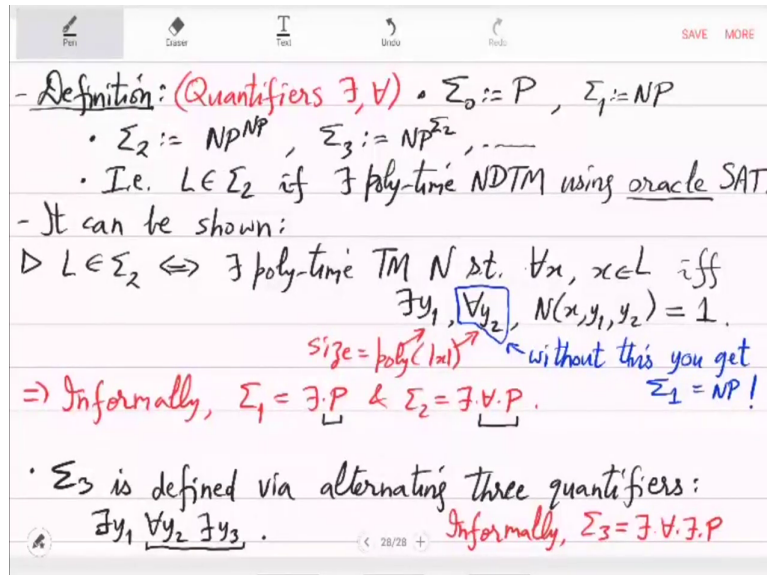 Pen Eraser Text Undo Redo SAVE MORE
- Definition: (Quantifiers ∃, ∀) • Σ₀ := P , Σ₁ := NP
• Σ₂ := NP^NP , Σ₃ := NP^Σ₂ , .....
• I.e. L ∈ Σ₂ if ∃ poly-time NDTM using oracle SAT.
- It can be shown:
▷ L ∈ Σ₂ ⇔ ∃ poly-time TM N s.t. ∀x, x∈L iff
∃y₁, ∀y₂, N(x,y₁,y₂) = 1.
size = poly(|x|) without this you get
Σ₁ = NP !
⇒ Informally, Σ₁ = ∃.P & Σ₂ = ∃.∀.P .
• Σ₃ is defined via alternating three quantifiers:
∃y₁ ∀y₂ ∃y₃ . Informally, Σ₃ = ∃.∀.∃.P
< 28/28 +